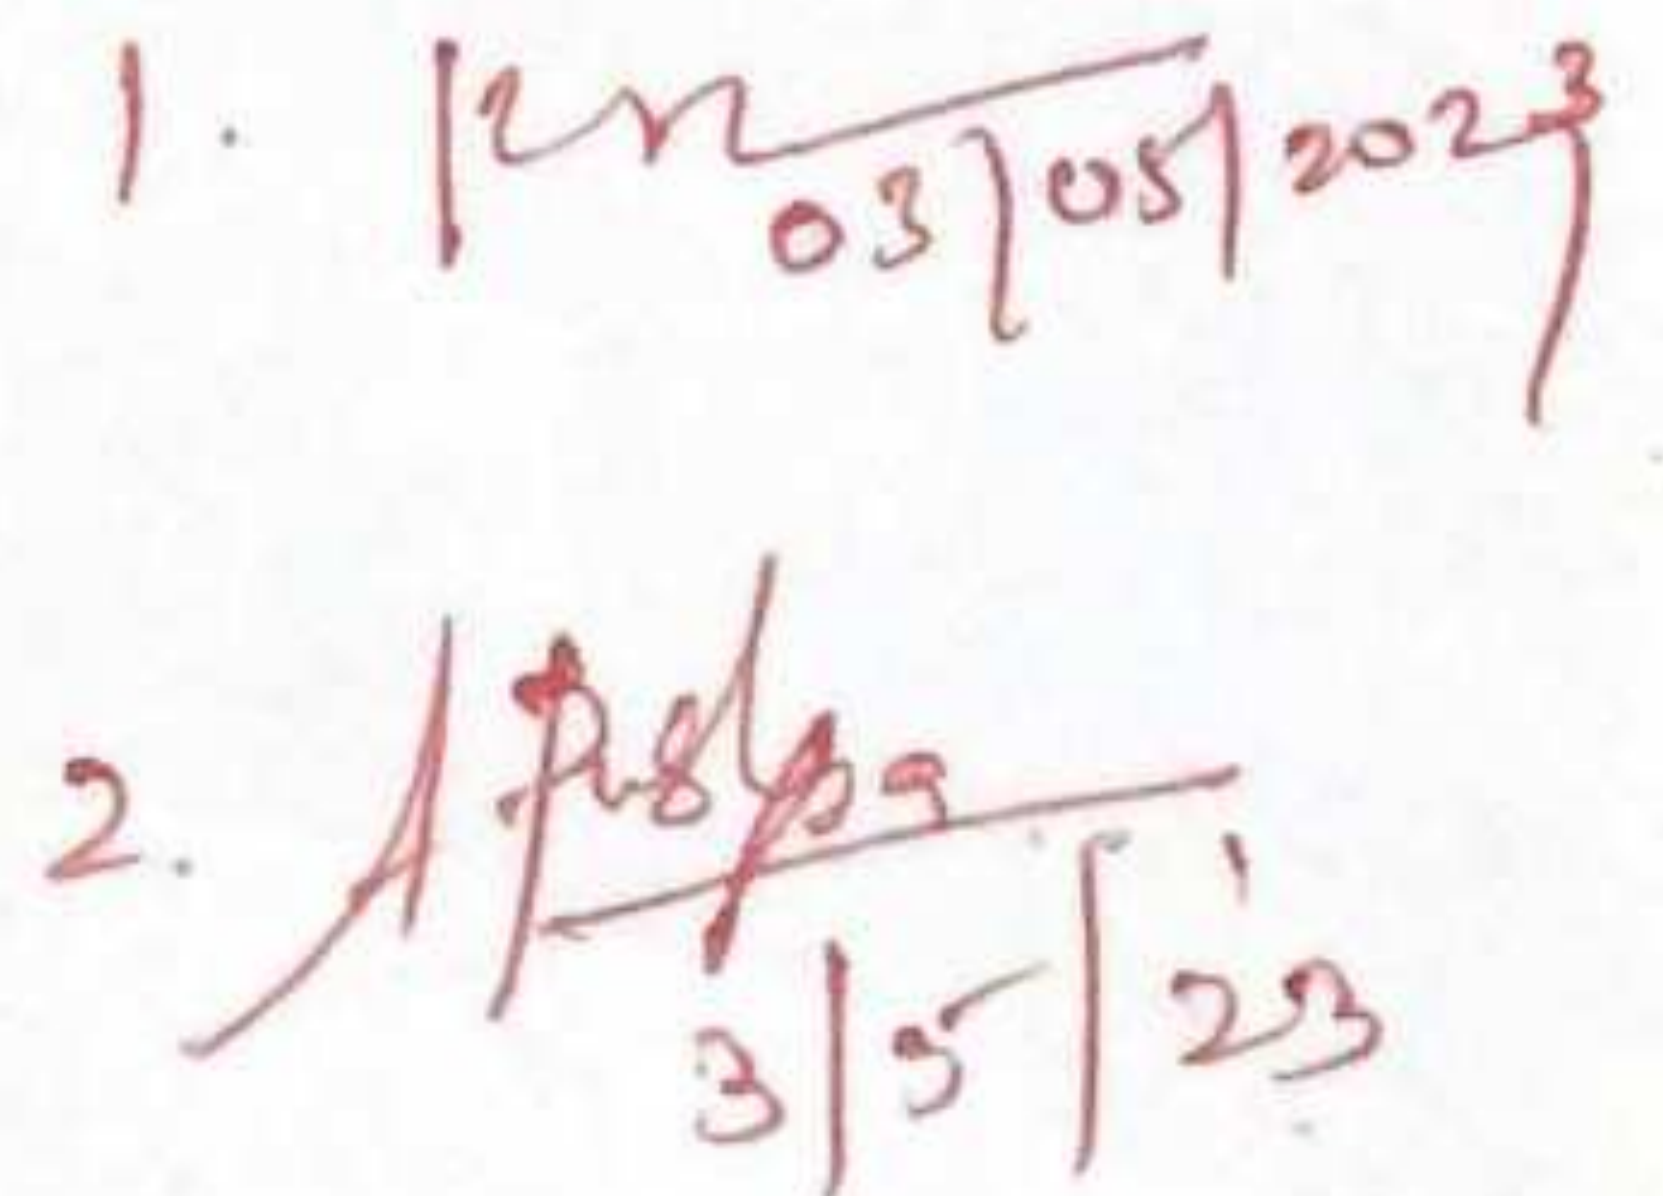 1.
03/05/2023
2. A Pushpa
3/5/23